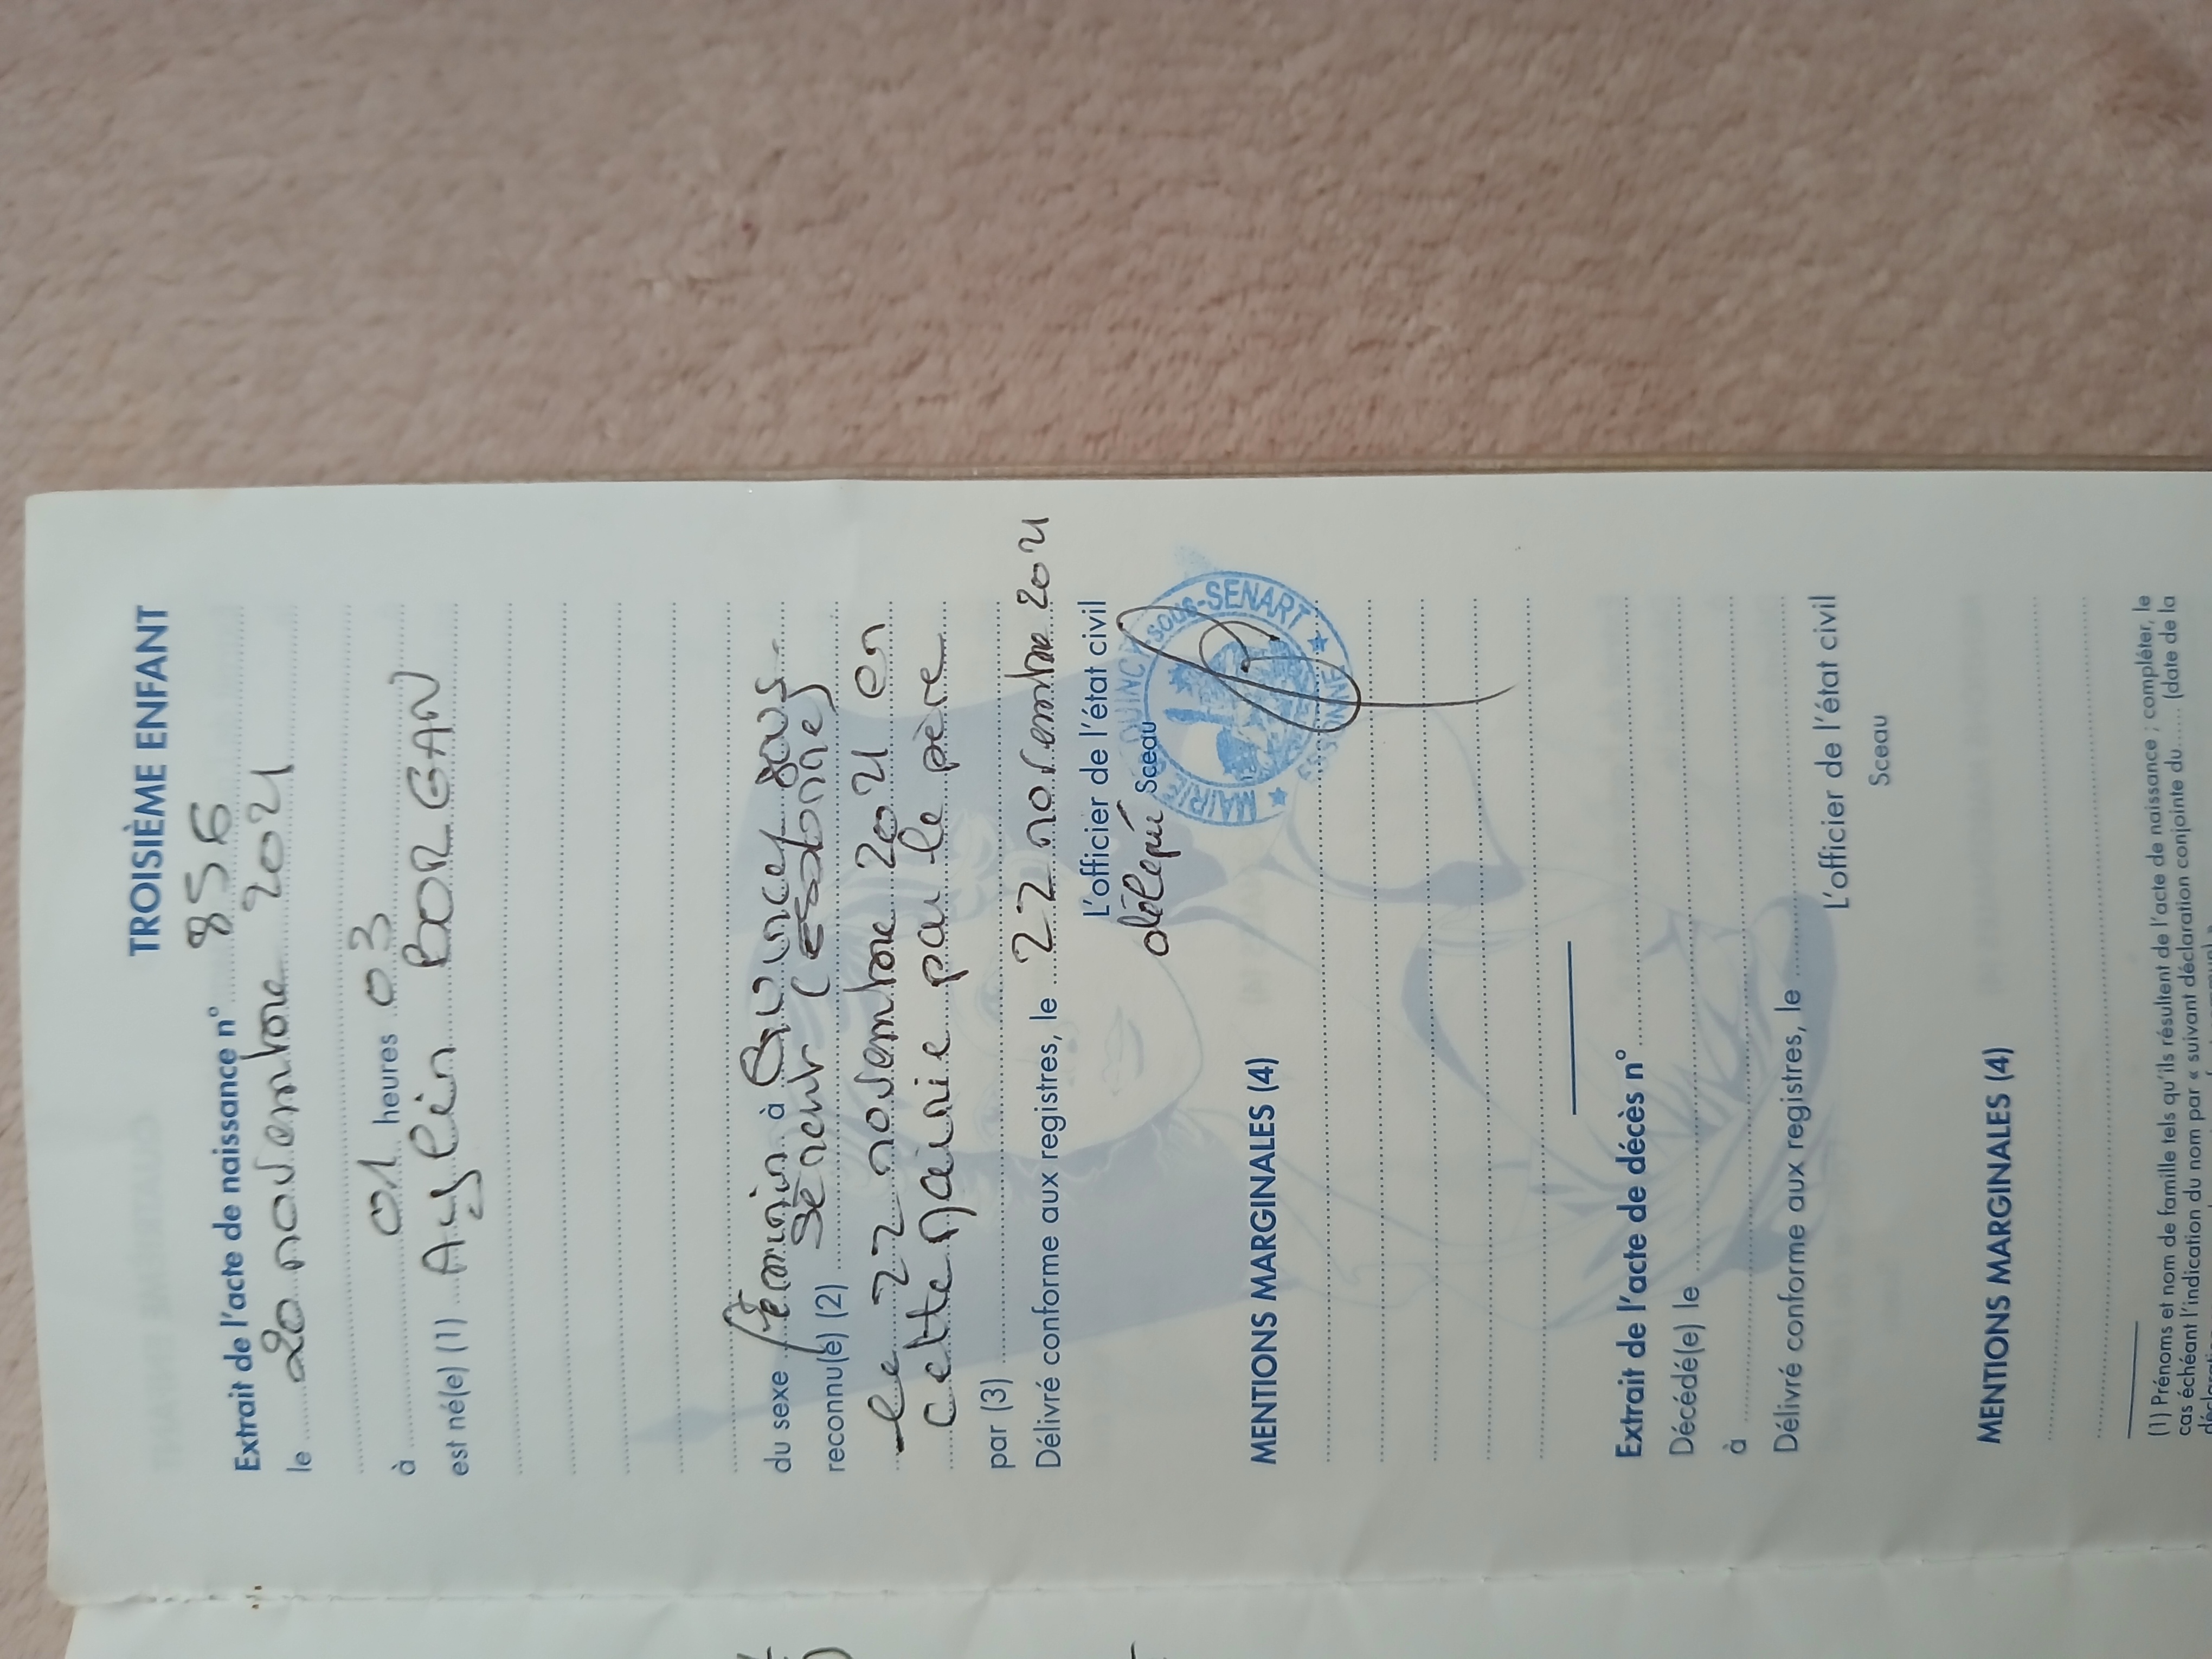 TROISIÈME ENFANT
Extrait de l'acte de naissance n° 856
le 20 novembre 2021
à 01 heures 03
est né(e) (1) Aylin BORGAN
du sexe féminin à Quincy sous
Sénart (Essonne)
reconnu(e) (2)
le 22 novembre 2021 en
cette Mairie par le père
par (3)
Délivré conforme aux registres, le 22 novembre 2021
L'officier de l'état civil
délégué Sceau
MAIRIE QUINCY-SOUS-SENART
ESSONNE
MENTIONS MARGINALES (4)
Extrait de l'acte de décès n°
Décédé(e) le
à
Délivré conforme aux registres, le
L'officier de l'état civil
Sceau
MENTIONS MARGINALES (4)
(1) Prénoms et nom de famille tels qu'ils résultent de l'acte de naissance ; compléter, le
cas échéant l'indication du nom par « suivant déclaration conjointe du ...... (date de la